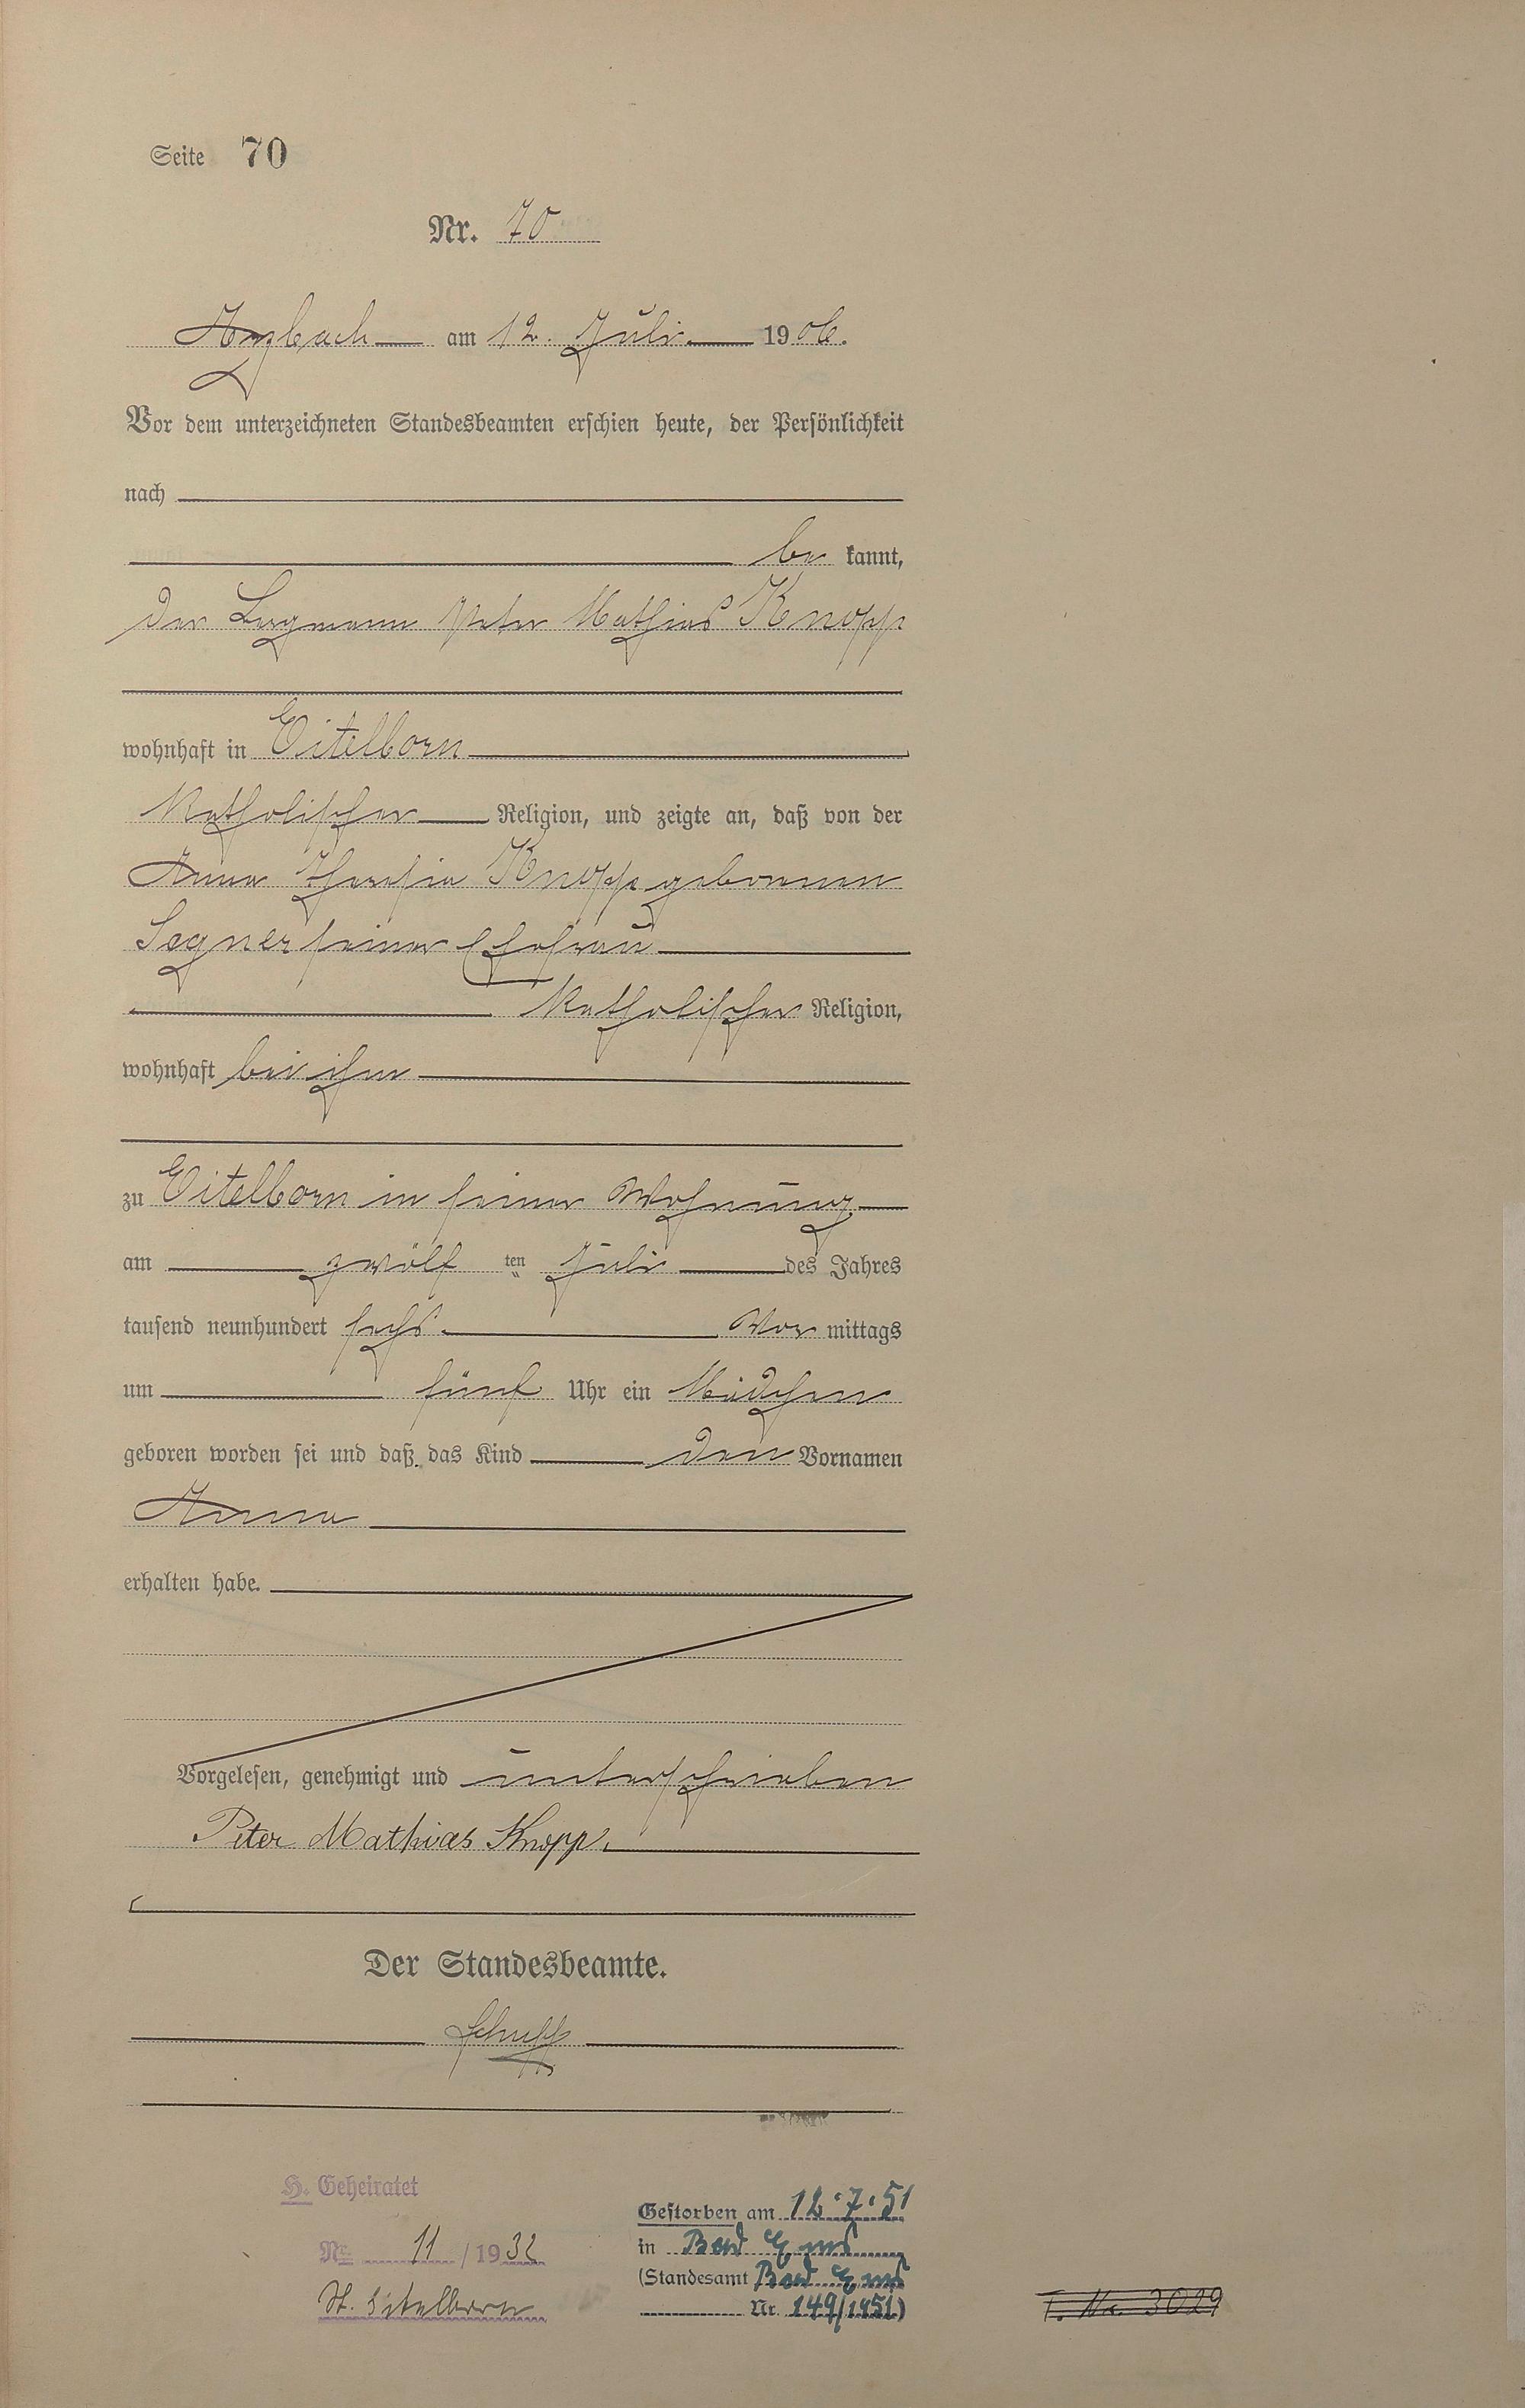 Seite 70
Nr. 70
Arzbach am 12. Juli 1906.
Vor dem unterzeichneten Standesbeamten erschien heute, der Persönlichkeit
nach
be kannt,
der Bergmann Peter Mathias Knopp
wohnhaft in Eitelborn
katholischer Religion, und zeigte an, daß von der
Anna Theresia Knopp geborenen
Segner seiner Ehefrau
katholischer Religion,
wohnhaft bei ihm
zu Eitelborn in seiner Wohnung
am zwölf ten Juli des Jahres
tausend neunhundert sechs Vor mittags
um fünf Uhr ein Mädchen
geboren worden sei und daß das Kind den Vornamen
Anna
erhalten habe.
Vorgelesen, genehmigt und unterschrieben
Peter Mathias Knopp.
Der Standesbeamte.
Schupp
H. Geheiratet
Nr. 11/1932
St. Eitelborn
Gestorben am 12.7.51
in Bad Ems
(Standesamt Bad Ems
Nr. 149/1951)
T. Nr. 3029